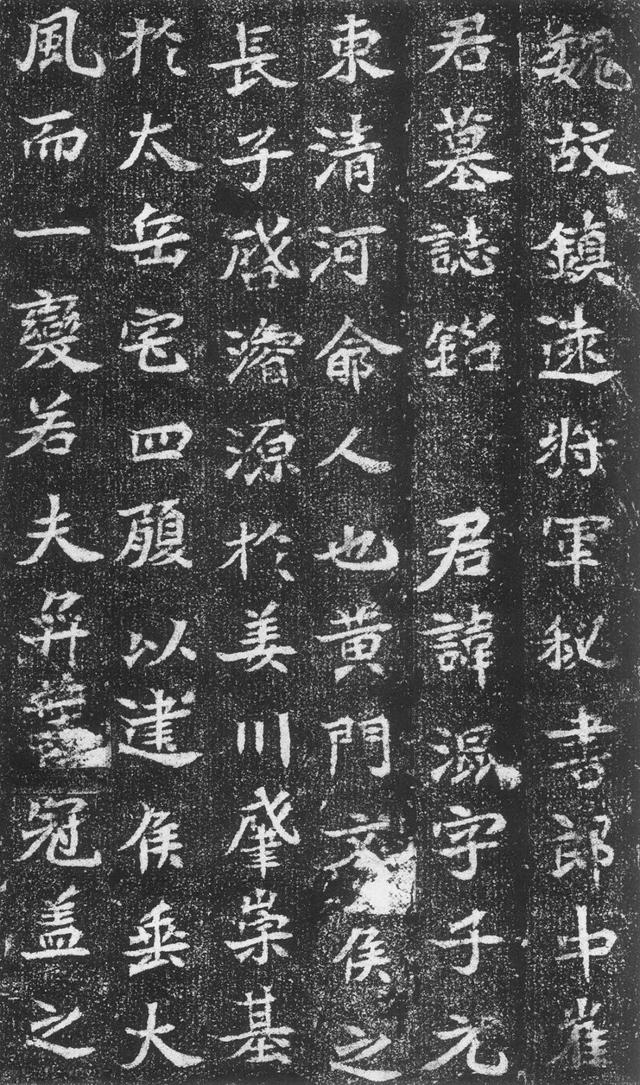 魏故鎮遠將軍秘書郎中崔
君墓誌銘 君諱混字子元
東清河俞人也黃門文侯之
長子啓濬源於姜川肇崇基
於太岳宅四履以建侯垂大
風而一變若夫弈葉冠蓋之